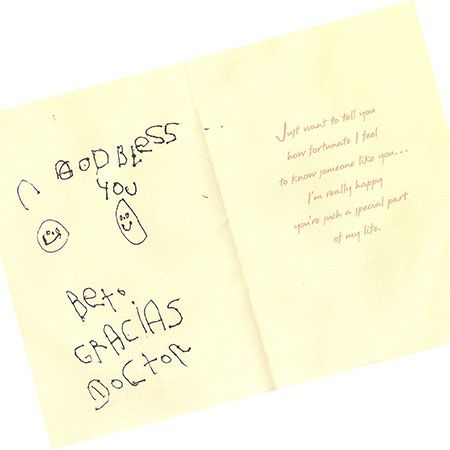 GOD BLESS
YOU
Beto.
GRACIAS
DOCTOR
Just want to tell you
how fortunate I feel
to know someone like you...
I'm really happy
you're such a special part
of my life.